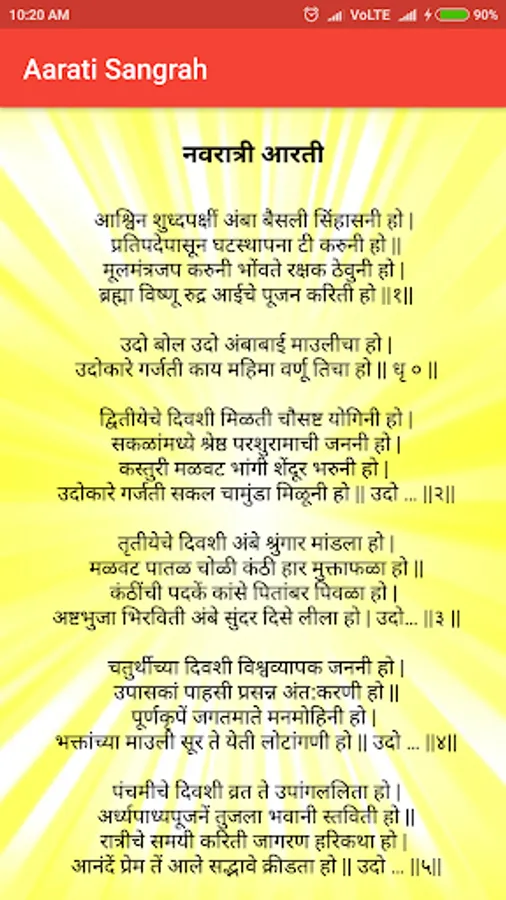 10:20 AM VoLTE 90%
Aarati Sangrah
नवरात्री आरती
आश्विन शुध्दपक्षीं अंबा बैसली सिंहासनी हो |
प्रतिपदेपासून घटस्थापना टी करुनी हो ||
मूलमंत्रजप करुनी भोंवते रक्षक ठेवुनी हो |
ब्रह्मा विष्णू रुद्र आईचे पूजन करिती हो ||१||
उदो बोल उदो अंबाबाई माउलीचा हो |
उदोकारे गर्जती काय महिमा वर्णू तिचा हो || धृ ० ||
द्वितीयेचे दिवशी मिळती चौसष्ट योगिनी हो |
सकळांमध्ये श्रेष्ठ परशुरामाची जननी हो |
कस्तुरी मळवट भांगी शेंदूर भरुनी हो |
उदोकारे गर्जती सकल चामुंडा मिळूनी हो || उदो ... ||२||
तृतीयेचे दिवशी अंबे श्रुंगार मांडला हो |
मळवट पातळ चोळी कंठी हार मुक्ताफळा हो ||
कंठींची पदकें कांसे पितांबर पिवळा हो |
अष्टभुजा भिरविती अंबे सुंदर दिसे लीला हो | उदो... ||३ ||
चतुर्थीच्या दिवशी विश्वव्यापक जननी हो |
उपासकां पाहसी प्रसन्न अंत:करणी हो ||
पूर्णकृपें जगतमाते मनमोहिनी हो |
भक्तांच्या माउली सूर ते येती लोटांगणी हो || उदो ... ||४||
पंचमीचे दिवशी व्रत ते उपांगललिता हो |
अर्ध्यपाध्यपूजनें तुजला भवानी स्तविती हो ||
रात्रीचे समयी करिती जागरण हरिकथा हो |
आनंदें प्रेम तें आले सद्भावे क्रीडता हो || उदो ... ||५||